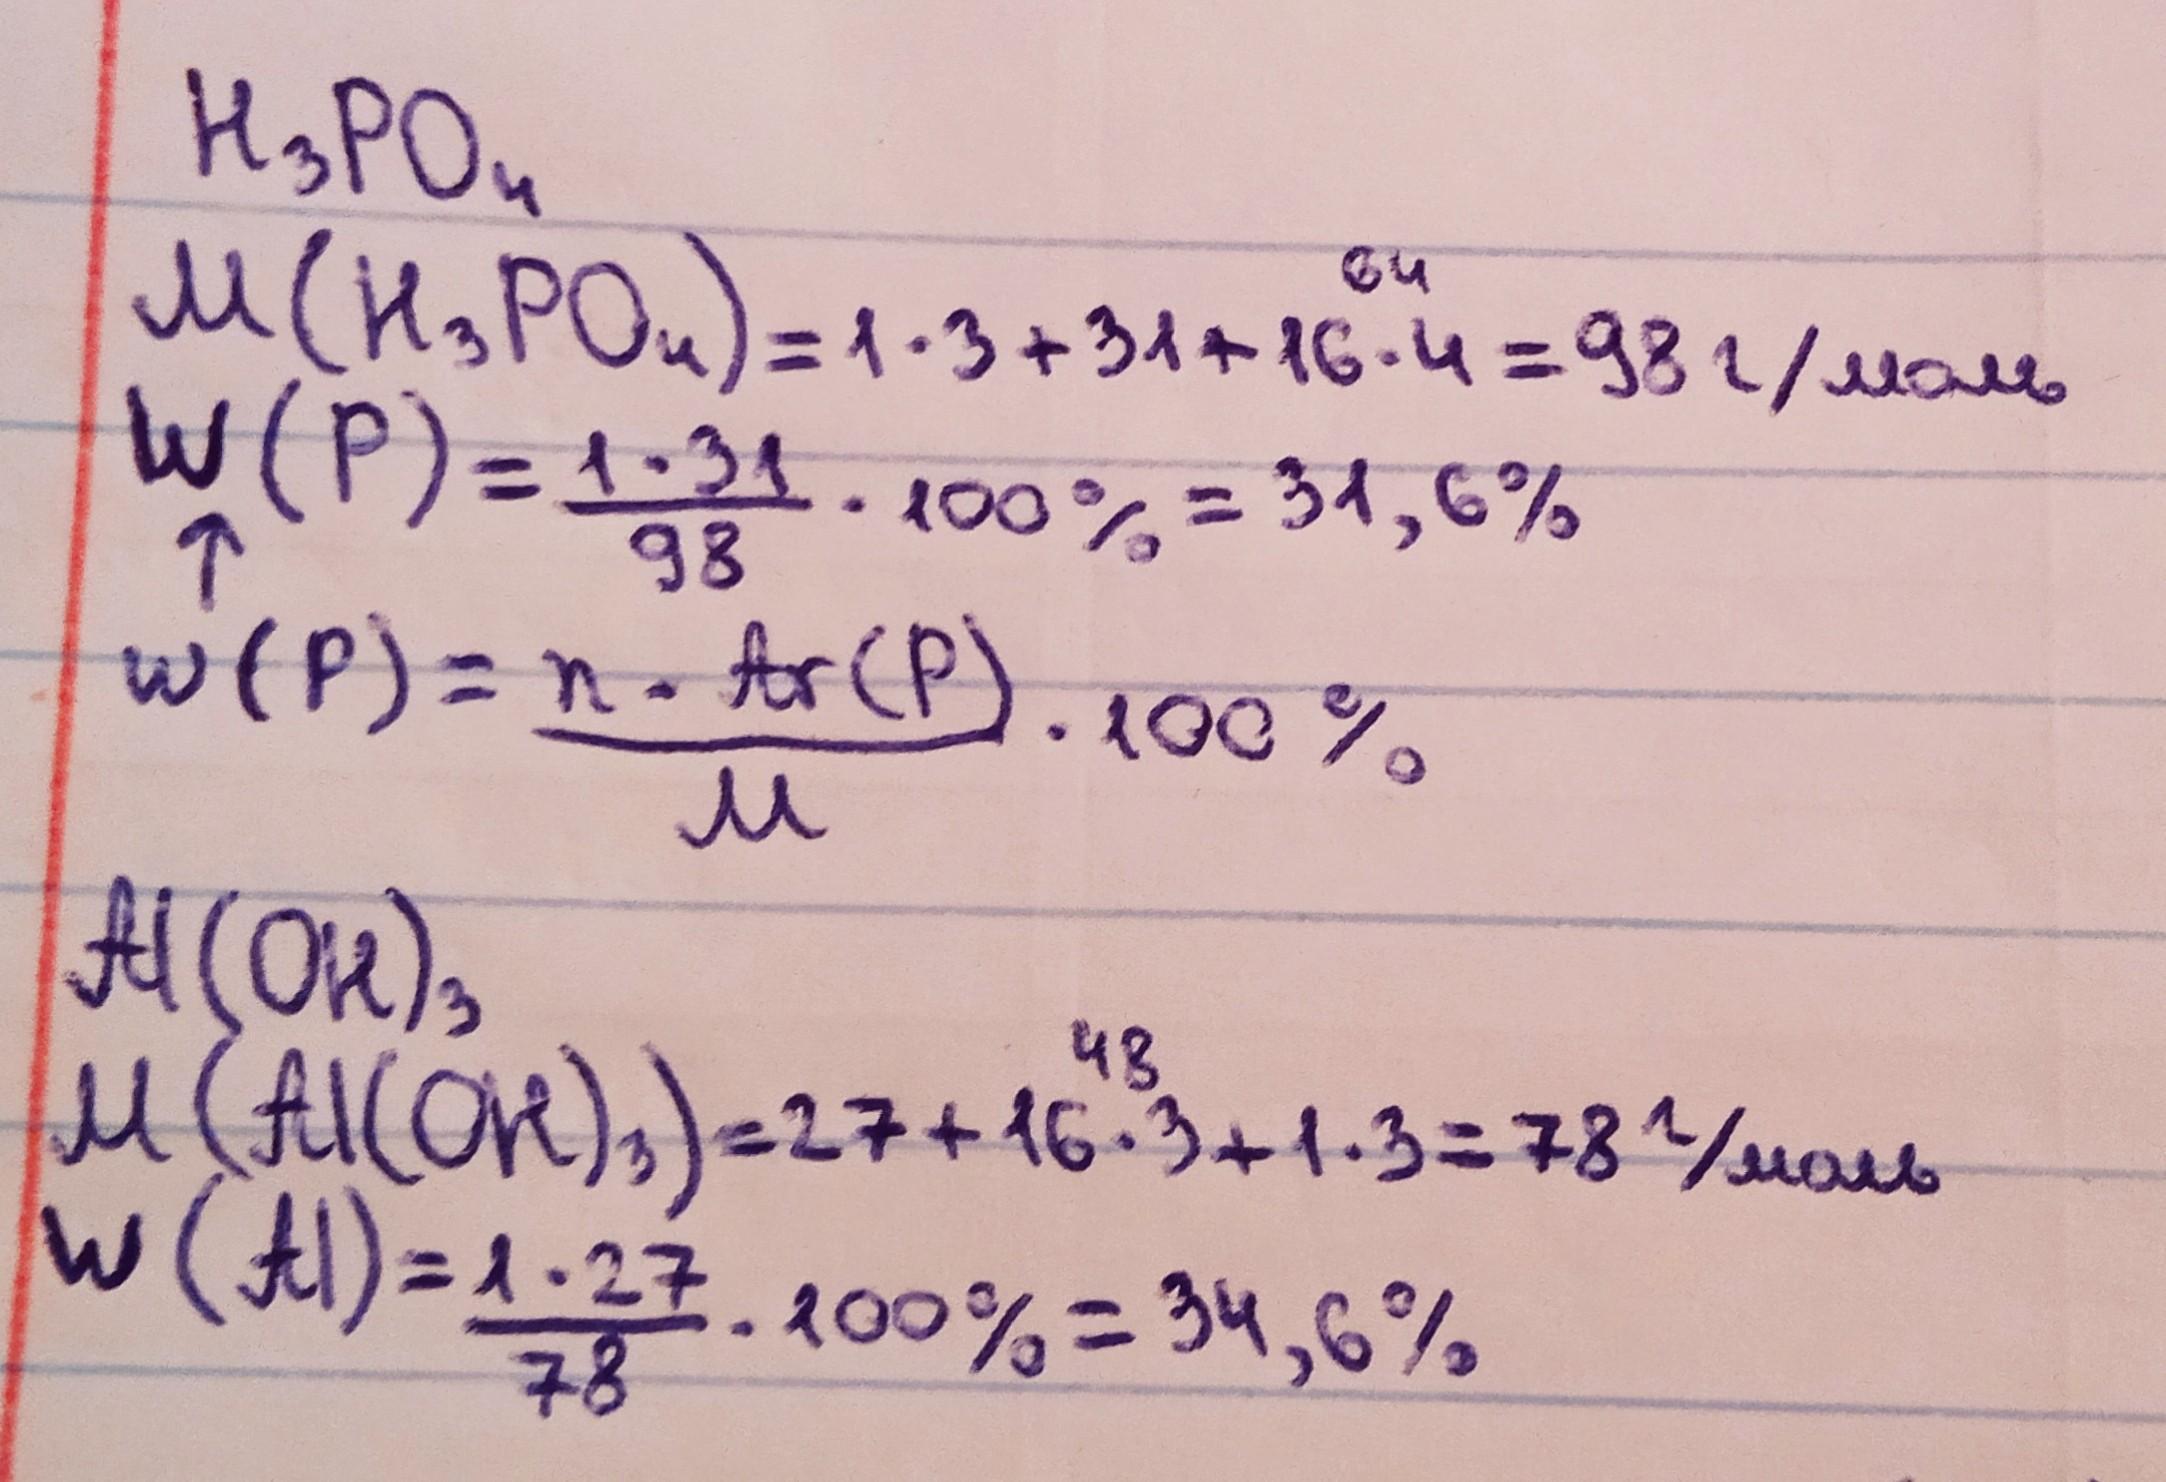 H₃PO₄
64
M(H₃PO₄)=1·3+31+16·4=98 г/моль
W(P)=1·31/98·100%=31,6%
↑
w(P)=n·Ar(P)/M·100%
Al(OH)₃
48
M(Al(OH)₃)=27+16·3+1·3=78 г/моль
W(Al)=1·27/78·100%=34,6%